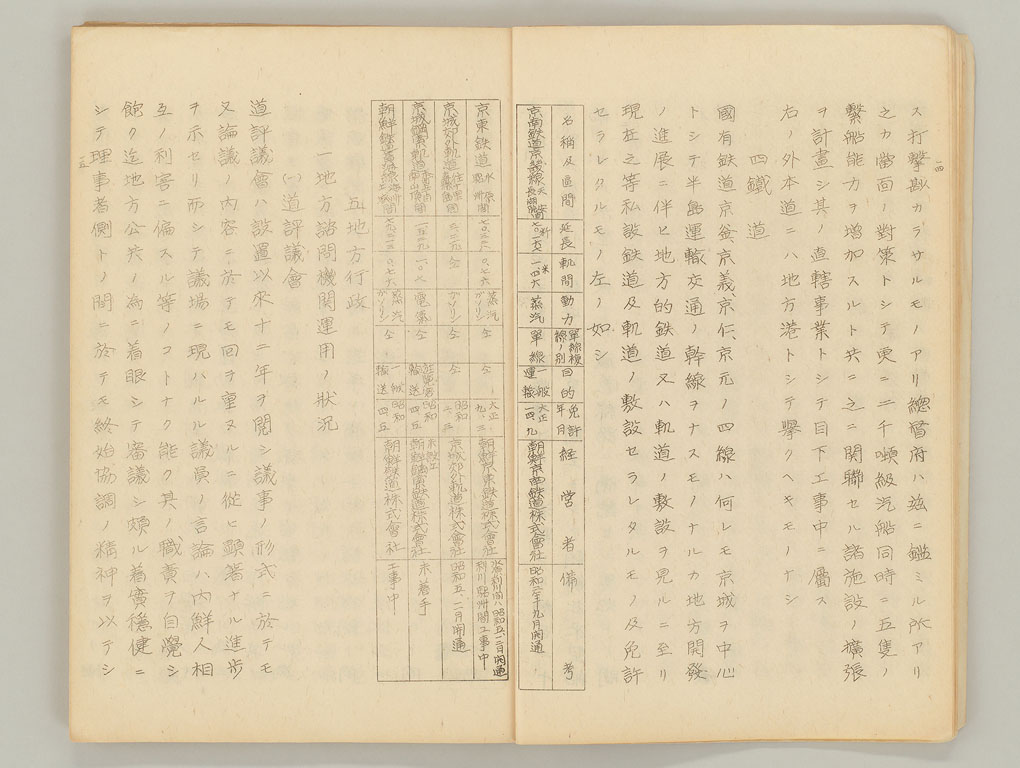 一四
ス打撃尠カラサルモノアリ總督府ハ玆ニ鑑ミル所アリ
之カ當面ノ對策トシテ更ニ二千噸級汽船同時ニ五隻ノ
繋船能力ヲ増加スルト共ニ之ニ関聯セル諸施設ノ擴張
ヲ計畫シ其ノ直轄事業トシテ目下工事中ニ屬ス
右ノ外本道ニハ地方港トシテ擧クヘキモノナシ
四鐵道
國有鉄道京釜、京義、京仁、京元ノ四線ハ何レモ京城ヲ中心
トシテ半島運輸交通ノ幹線ヲナスモノナルカ地方開發
ノ進展ニ伴ヒ地方的鉄道又ハ軌道ノ敷設ヲ見ルニ至リ
現在之等私設鉄道及軌道ノ敷設セラレタルモノ及免許
セラレタルモノ左ノ如シ
名稱及區間 延長 軌間 動力 單線複線ノ別 目的 免許年月 経営者 備考
京南鉄道京畿線 米 一、四六 蒸汽 單線 一般運輸 大正一四、九 朝鮮京南鉄道株式會社 昭和二年九月開通
京東鉄道 〇、七六 蒸汽ガソリン 仝 仝 大正九、三 朝鮮京東鉄道株式會社 昭和五、一二月開通 利川驪州間工事中
京城郊外軌道 仝 ガソリン 仝 仝 昭和 京城郊外軌道株式會社 昭和五、二月開通
電氣 仝 昭和 未着手
朝鮮鉄道 〇、七六 蒸汽ガソリン 仝 一般運送 昭和四、五 朝鮮鉄道株式會社 工事中
五地方行政
一地方諮問機関運用ノ状況
(一)道評議會
道評議會ハ設置以來十二年ヲ閲シ議事ノ形式ニ於テモ
又論議ノ内容ニ於テモ回ヲ重ヌルニ從ヒ顕著ナル進歩
ヲ示セリ而シテ議場ニ現ハルル議員ノ言論ハ内鮮人相
互ノ利害ニ偏スル等ノコトナク能ク其ノ職責ヲ自覺シ
飽ク迄地方公共ノ為ニ着眼シテ審議シ頗ル着實穏健ニ
シテ理事者側トノ間ニ於テモ終始協調ノ精神ヲ以テシ
一五